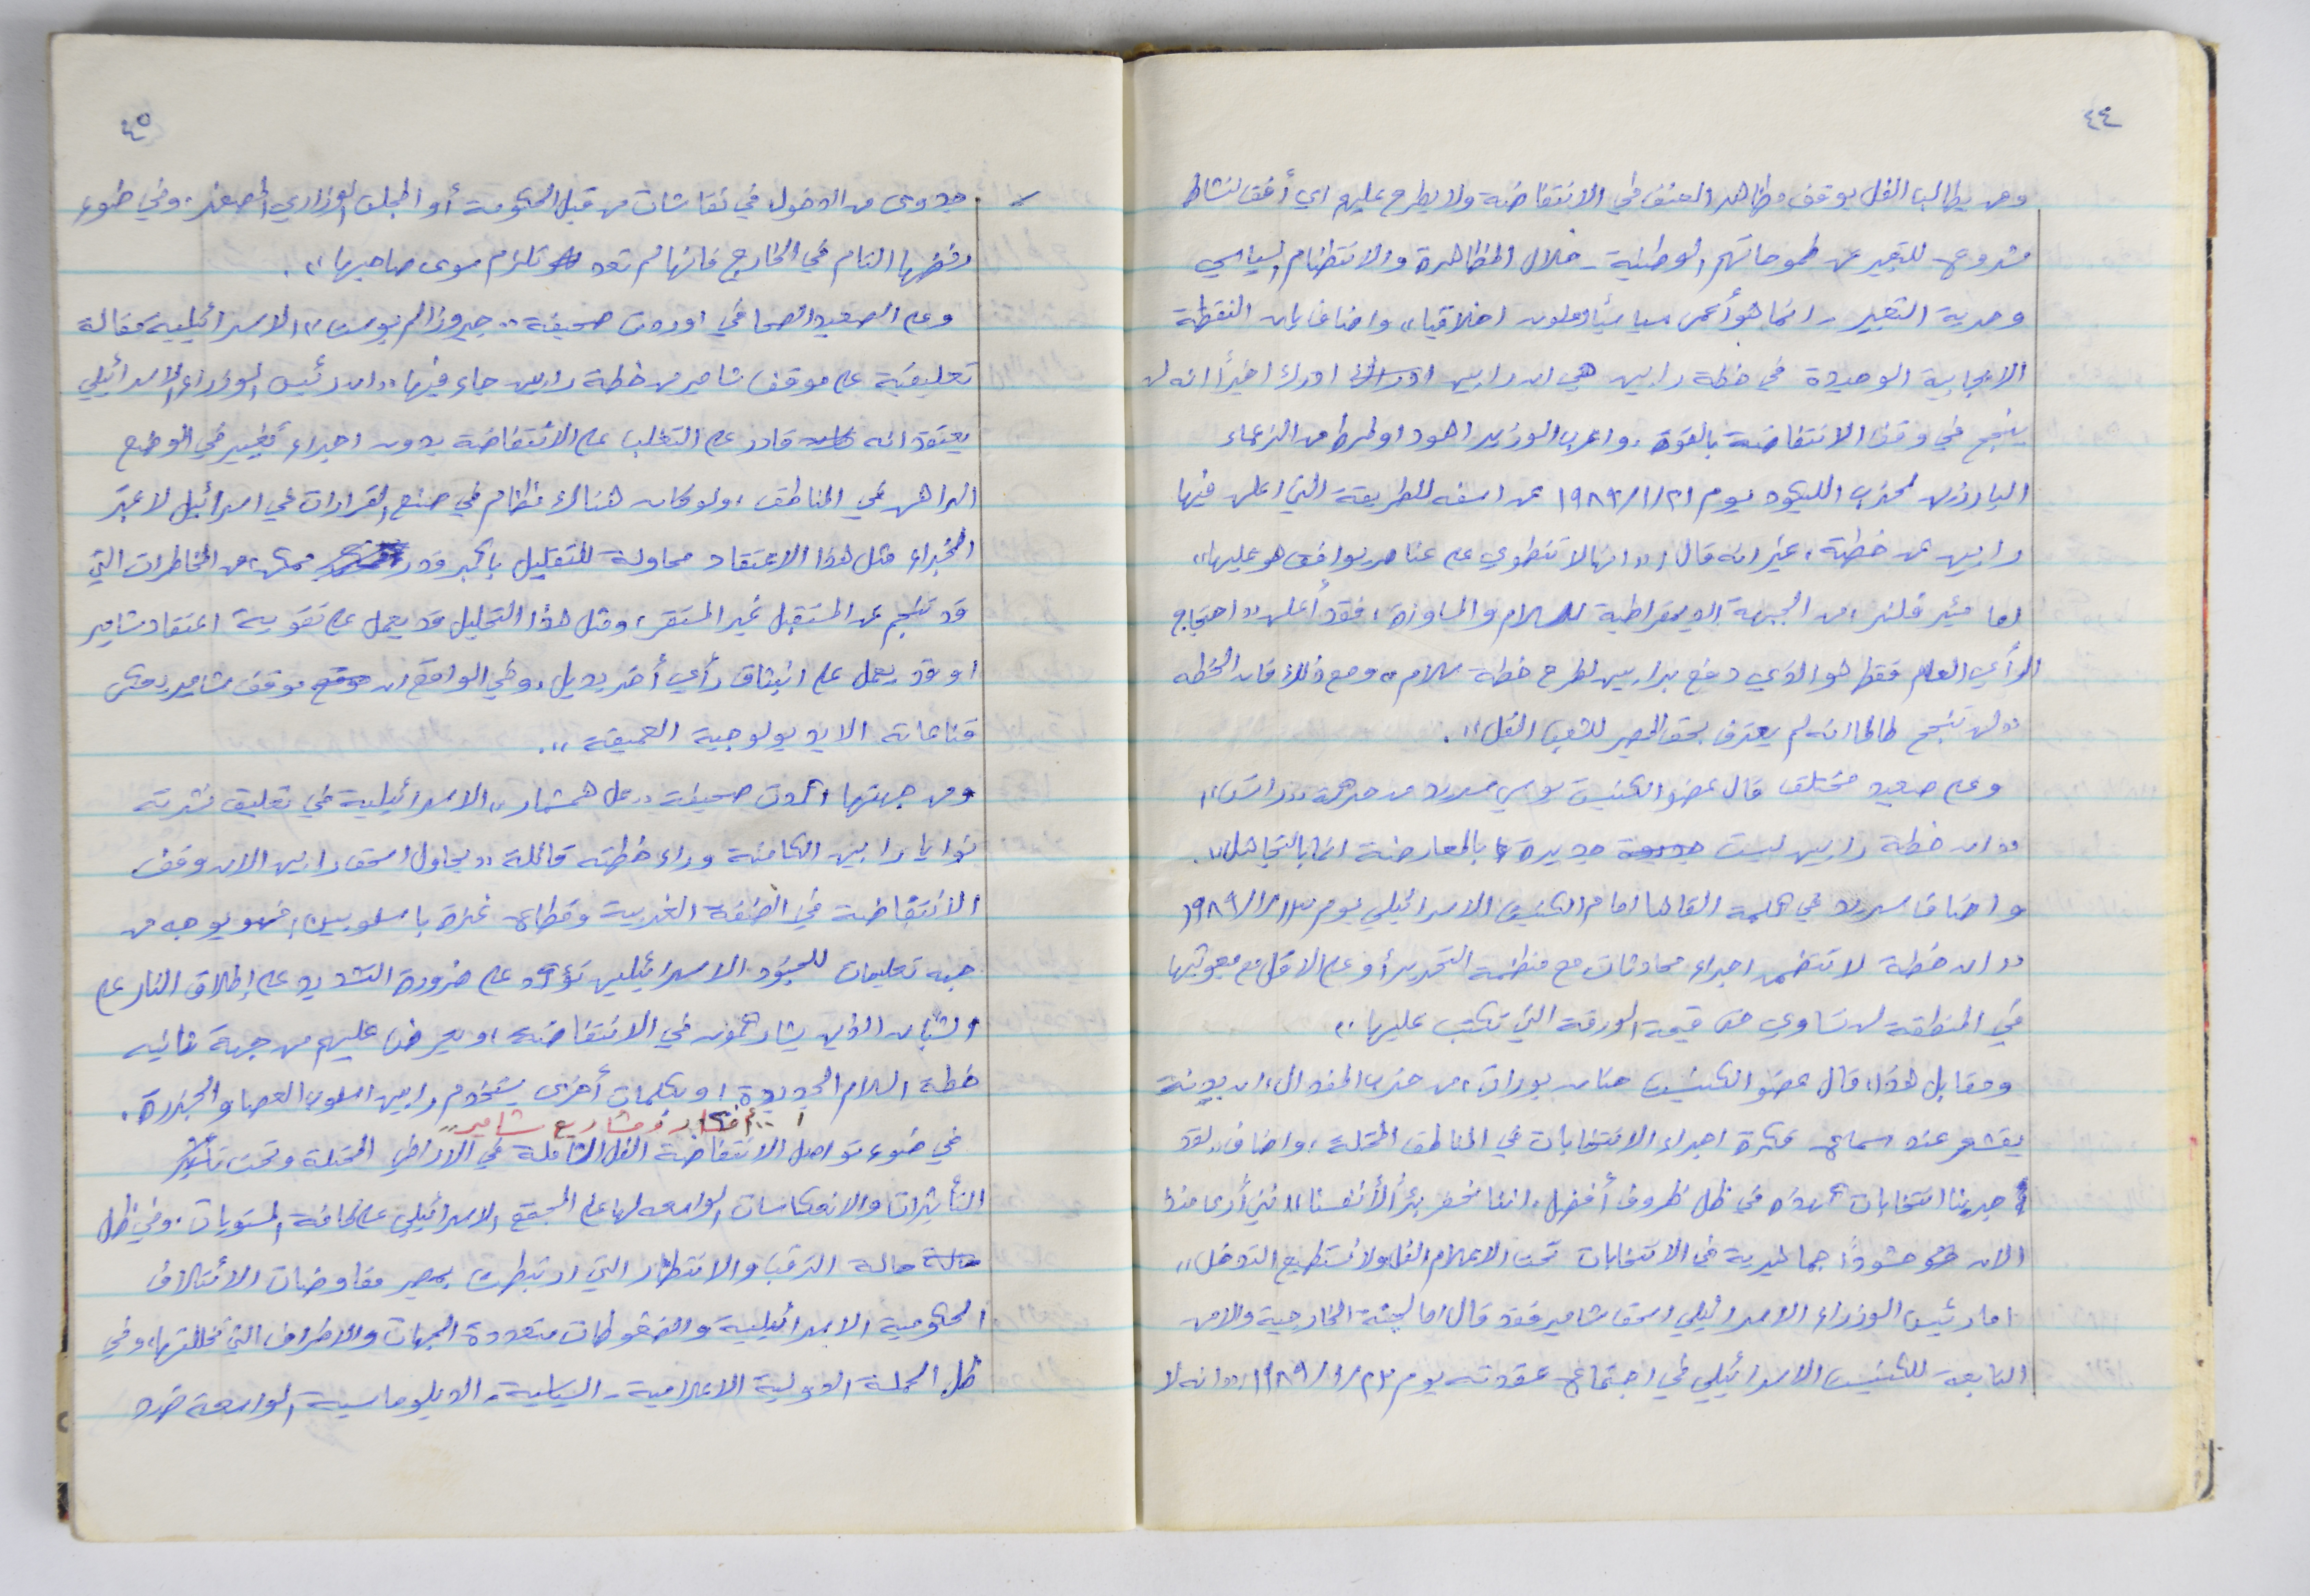 ٤٤
ومن يطالب الفل بوقف مظاهر العنف في الانتفاضة ولا يطرح عليهم اي أفق لنشاط
مشروع للتعبير عن طموحاتهم الوطنية - خلال المظاهرة والانتظام السياسي
وحرية التعبير - انما هو أعمى سياسياً وملوث اخلاقيا،، واضاف بان النقطة
الايجابية الوحيدة في خطة رابين هي ان رابين ادرك اخيراً انه لن
ينجح في وقف الانتفاضة بالقوة. واعرب الوزير اهود اولمرط من الزعماء
البارزين لحزب الليكود يوم ٢١/١/١٩٨٩ عن اسفه للطريقة التي اعلن فيها
رابين عن خطته، غير انه قال: ,,انها لا تنطوي على عناصر يوافق هو عليها,,
اما مئير فلنر، من الجبهة الديمقراطية للسلام والمساواة، فقد أعلن ,,احتجاج
الرأي العام فقط هو الذي دفع برابين لطرح خطة سلام,, ومع ذلك فان الخطه
,,لن تنجح طالما انه لم يعترف بحق المصير للشعب الفل,,.
وعلى صعيد مختلف قال عضو الكنيست يوسي سريد من حركة ,,راتس,,
,,ان خطة رابين ليست جديرة بالمعارضة انما بالتجاهل,,.
واضاف سريد في كلمة القاها امام الكنيست الاسرائيلي يوم ١٩٨٩/١/
,,ان خطة لا تتضمن اجراء محادثات مع منظمة التحرير أو على الاقل مع مبعوثيها
في المنطقة لن تساوي حتى قيمة الورقة التي تكتب عليها,,
ومقابل هذا، قال عضو الكنيست حنان بورات، من حزب المفدال، ان بدنه
يقشعر عند سماع فكرة اجراء الانتخابات في المناطق المحتلة، واضاف ,,لقد
جربنا انتخابات كهذه في ظل ظروف أفضل، اننا نحفر بئراً لأنفسنا,, انني أرى منذ
الان حشوداً جماهيرية في الانتخابات تحت الاعلام الفل ولا نستطيع التدخل,,
اما رئيس الوزراء الاسرائيلي اسحق شامير فقد قال امام لجنة الخارجية والامن
التابعة للكنيست الاسرائيلي في اجتماع عقدته يوم ٢٣/١/١٩٨٩: ,,انه لا
٤٥
جدوى من الدخول في نقاشات من قبل الحكومة أو المجلس الوزاري المصغر، وفي ضوء
رفضها التام في الخارج فانها لم تعد تلزم سوى صاحبها,,.
وعلى الصعيد الصحافي اوردت صحيفة ,,جيروزالم بوست,, الاسرائيلية مقالة
تعليقية على موقف شامير من خطة رابين جاء فيها ,,ان رئيس الوزراء الاسرائيلي
يعتقد انه قادر على التغلب على الانتفاضة بدون اجراء تغيير في الوضع
الراهن في المناطق، ولو كان هناك نظام في صنع القرارات في اسرائيل لاعتبر
الخبراء مثل هذا الاعتقاد محاولة للتقليل باكبر قدر ممكن من المخاطرات التي
قد تنجم عن المستقبل غير المستقر، ومثل هذا التحليل قد يعمل على تقوية اعتقاد شامير
او قد يعمل على انبثاق رأي أخر بديل، وفي الواقع ان موقف شامير يعكس
قناعاته الايديولوجية العميقة,,.
ومن جهتها اكدت صحيفة ,,عل همشمار,, الاسرائيلية في تعليق نشرته
نوايا رابين الكامنة وراء خطته قائلة ,,يحاول اسحق رابين الان وقف
الانتفاضة في الضفة الغربية وقطاع غزة باسلوبين، فهو يوجه من
جهه تعليمات للجنود الاسرائيليين تؤكد على ضرورة التشديد على إطلاق النار على
الشبان الذين يشاركون في الانتفاضة، ويعرض عليهم من جهة ثانيه
خطة السلام الجديدة، وبكلمات أخرى يستخدم رابين اسلوب العصا والجزرة.
,,أفكار ومشاريع شامير,,
في ضوء تواصل الانتفاضة الفل الشاملة في الاراضي المحتلة وتحت تأثير
التأثيرات والانعكاسات الواسعه لها على المجتمع الاسرائيلي على كافة المستويات، وفي ظل
حالة الترقب والانتظار التي ارتبطت بمصير مفاوضات الأئتلاف
الحكومية الاسرائيلية والضغوطات متعددة الجهات والاطراف التي تخللتها، وفي
ظل الحملة الدولية الاعلامية - السياسية - الدبلوماسية الواسعة ضد